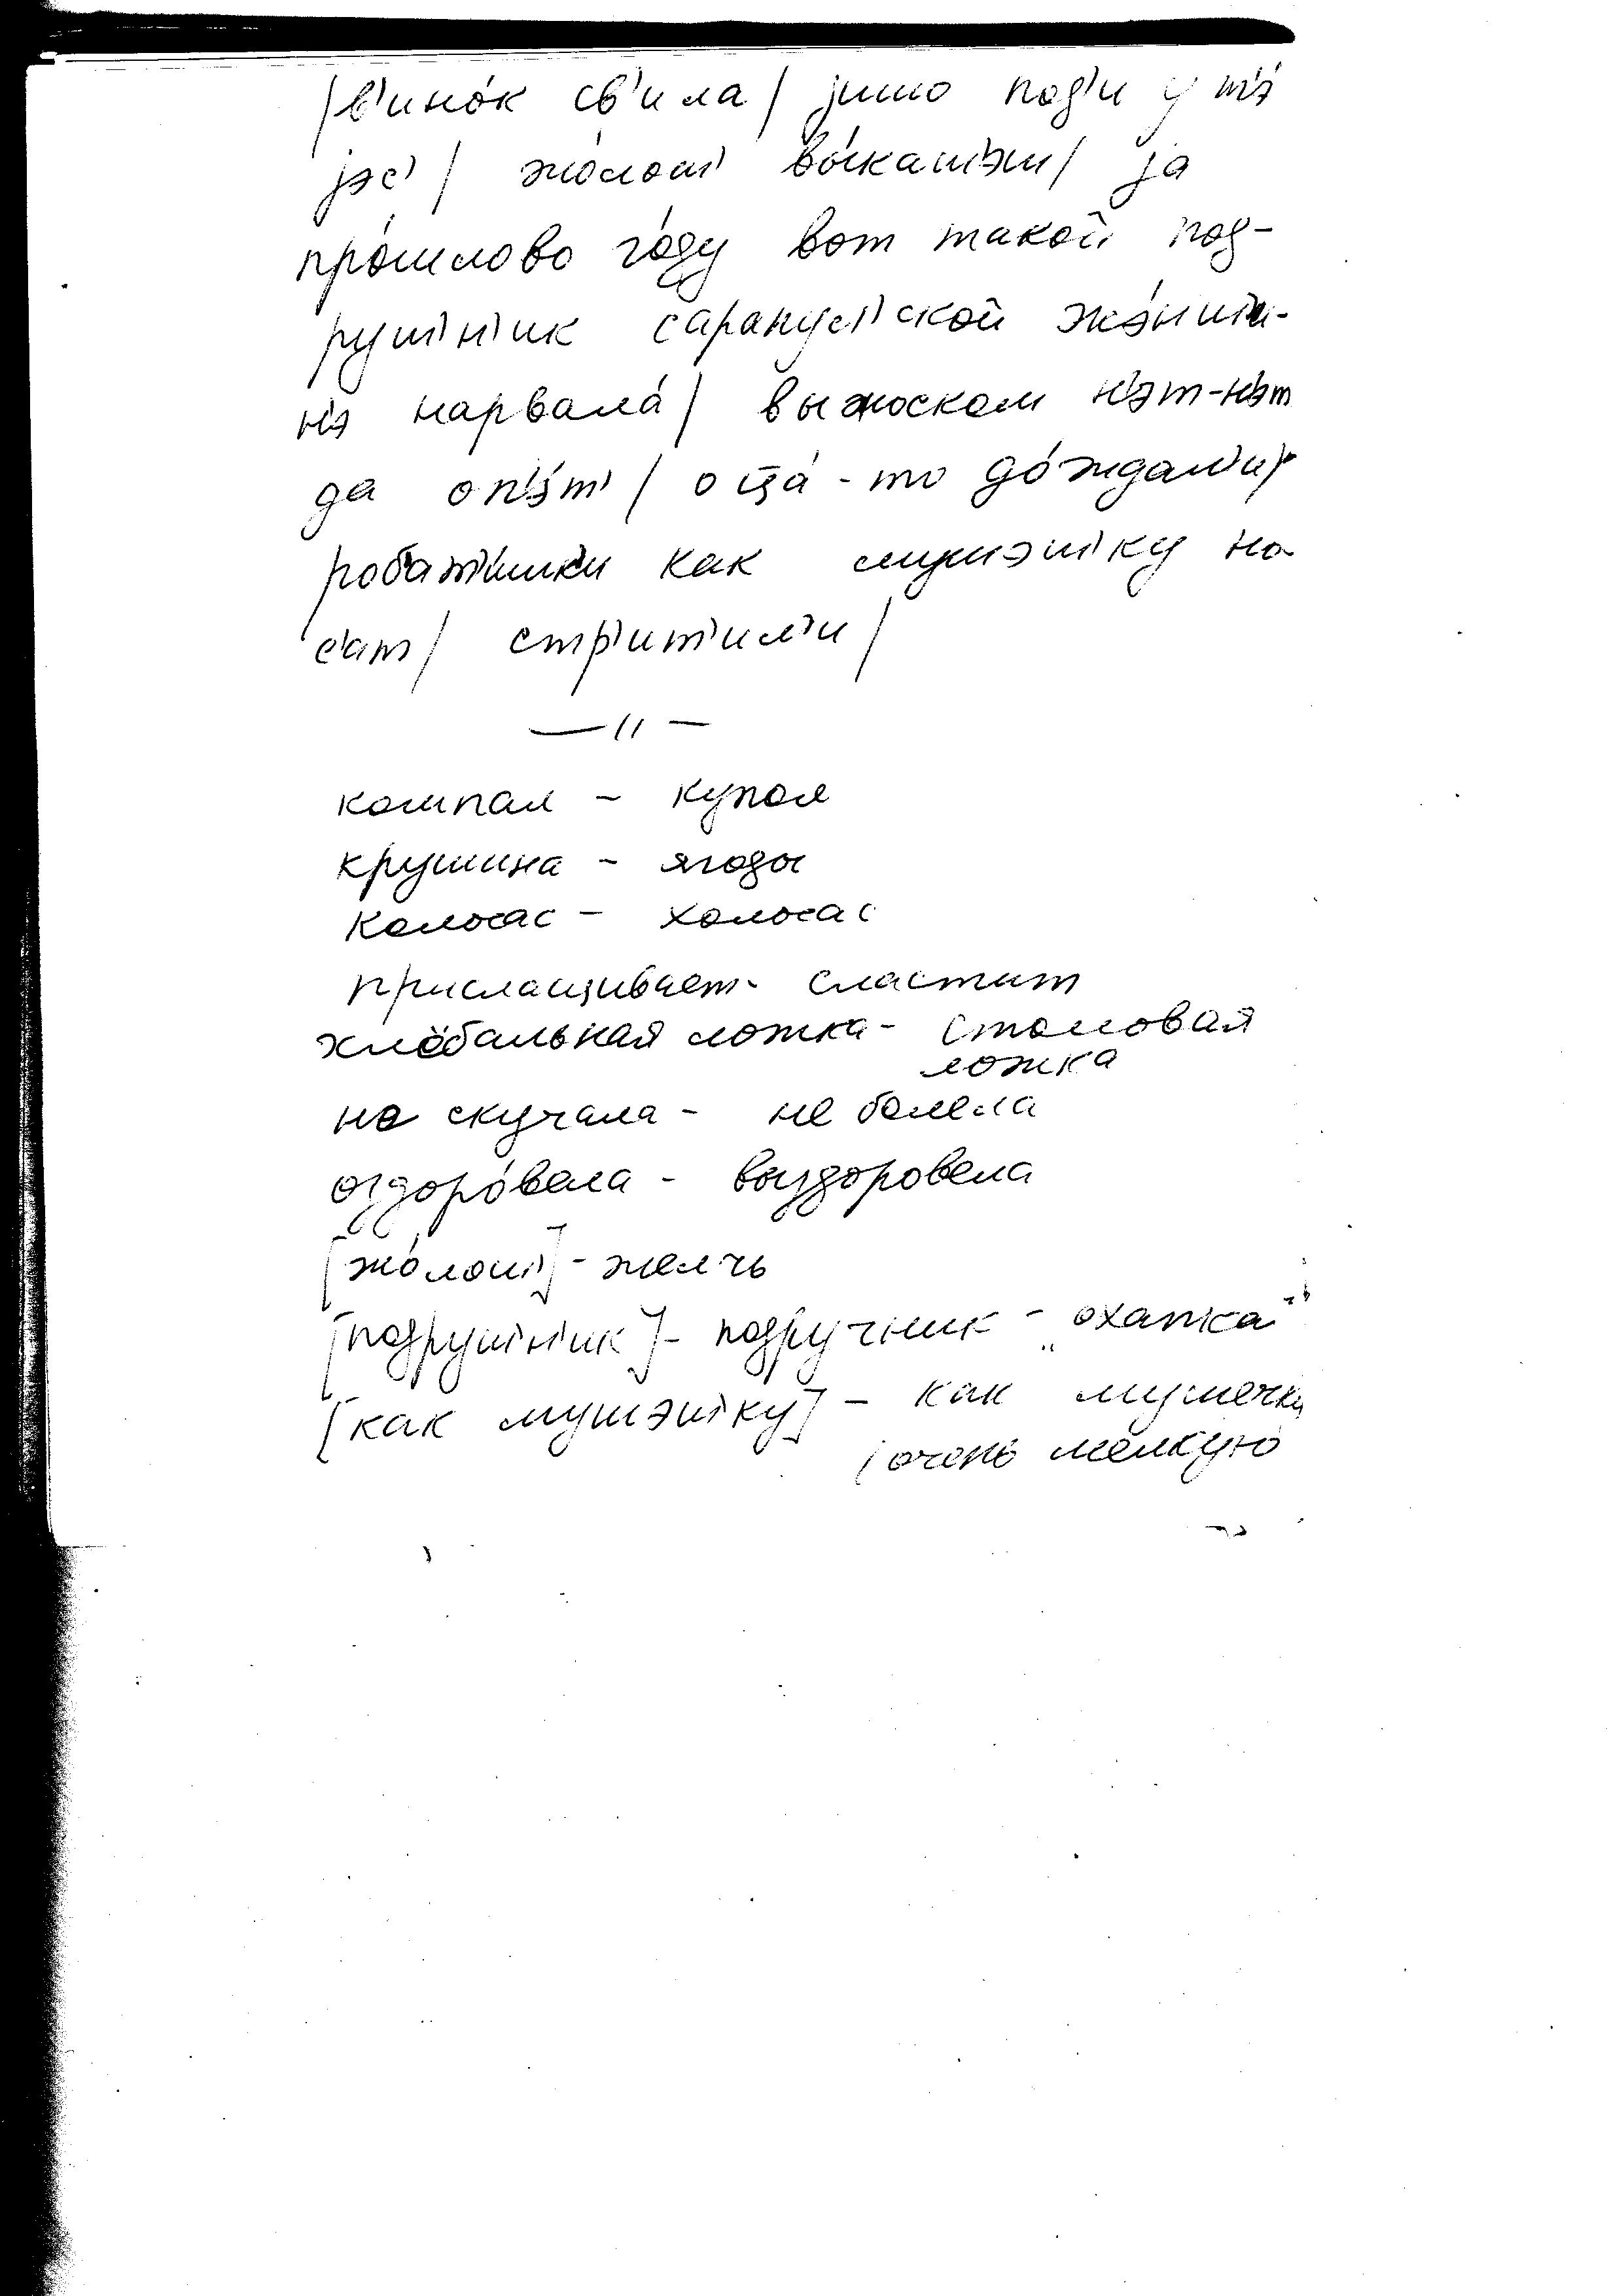 /в'ино́к св'ила/ јишо под'и у т'э́
јэс'/ жо́лош' вы́кат'эт/ ја
про́шлово го́ду вот такой под-
руш'н'ик сарапул'ской жэ́ншш'и-
н'э нарвала́/ выжоском н'эт-н'эт
да оп'э́т'/ ощ̅а́-то до́ждал'и/
как мушэш'ку на-
с'ат/ стр'ит'ил'и/
— // —
компал - купол
крушина - ягоды
Колосас - холосас
прислащивает - сластит
хлёбальная ложка - столовая
ложка
не скучала - не болела
оздоро́вела - выздоровела
[жо́лош'] - желчь
[подруш'н'ик] - подручник - „охапка"
[как мушэш'ку] - как мушечку
(очень мелкую